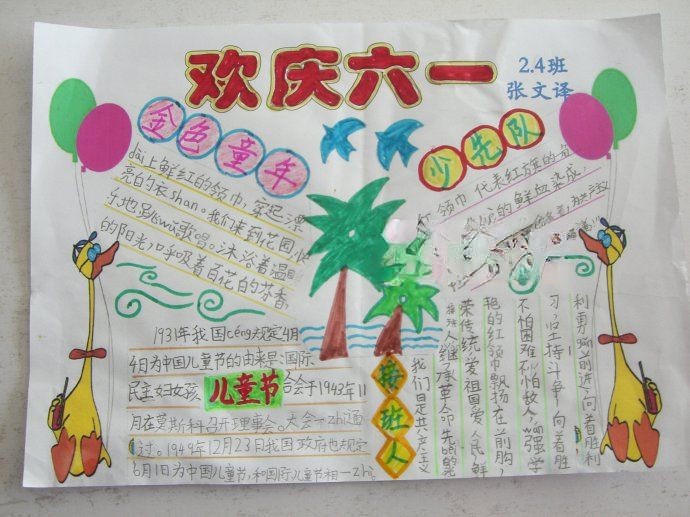 欢庆六一
2.4班
张文译
金色童年
dài上鲜红的领巾,穿起漂
亮的衣shan。我们来到花园,快
乐地跳wǔ歌唱。沐浴着温
的阳光,呼吸着百花的芬香
少先队
领巾 代表红旗的
的鲜血染成,
1931年我国céng规定4月
4日为中国儿童节的由来是:国际
民主妇女孩
儿童节
合会于1943年11
月在莫斯科召开理事会。大会一zhì通
过。1949年12月23日我国政府也规定
6月1为中国儿童节,和国际儿童节相一zhì。
接班人
我们是共产主义
接班人继承革命先bèi的光
荣传统,爱祖国爱人民,鲜
艳的红领巾飘扬在前胸,
不怕困难不怕敌人,wán强学
习,坚持斗争,向着胜
利勇gǎn前进,向着胜利